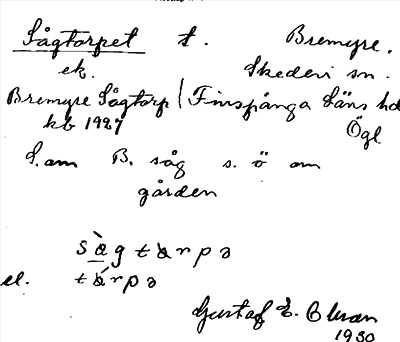 Sågtorpet t. Bremyre.
ek. Skedevi sn.
Bremyre Sågtorp / Finspånga Läns hd
kb 1927 Ögl
S. om B. såg s. ö om
gården
sågtɑrpə
el. tɑ́rpə
Gustaf E. 
1930